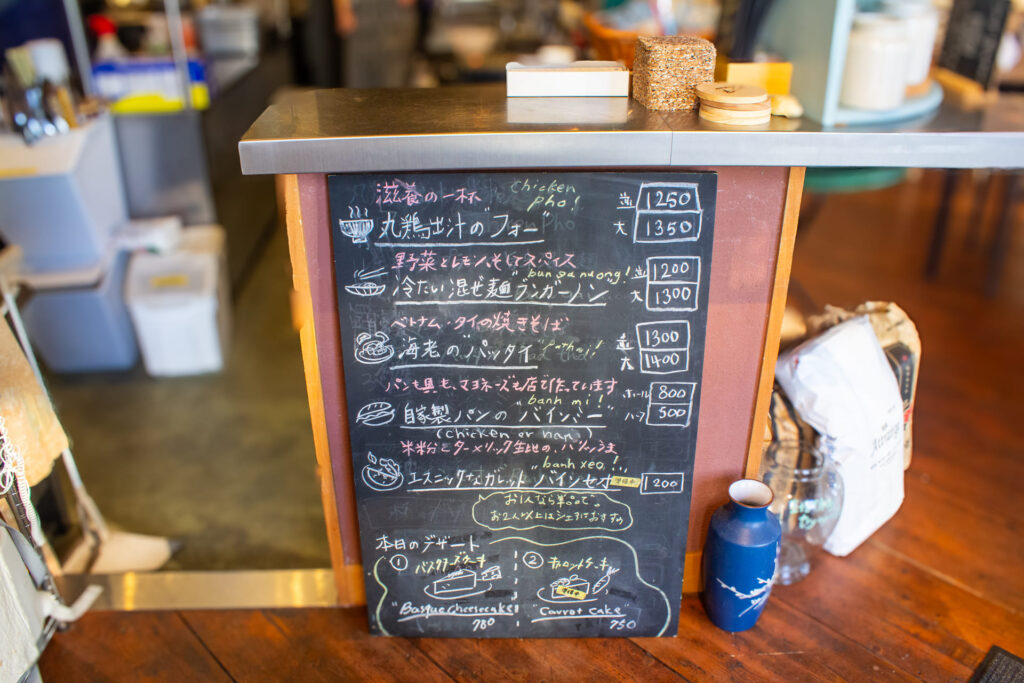 滋養の一杯 chicken pho!
丸鶏出汁のフォー
並 1250
大 1350
野菜とレモン、そしてスパイス
"bun ga nuong!
冷たい混ぜ麺ブンガーノン
並 1200
大 1300
ベトナム・タイの焼きそば
海老のパッタイ
並 1300
大 1400
パンも具も、マヨネーズも店で作っています
"banh mi!
自家製パンのバインミー
(chicken or ham)
ホール 800
ハーフ 500
米粉とターメリック生地の、パリッと
"banh xeo!
エスニックなガレット バインセオ
準備中
1200
お1人なら単品で。
お2人以上はシェアにおすすめ
本日のデザート
① バスクチーズケーキ
"Basque cheesecake"
780
② キャロットケーキ
準備中
"Carrot cake"
750